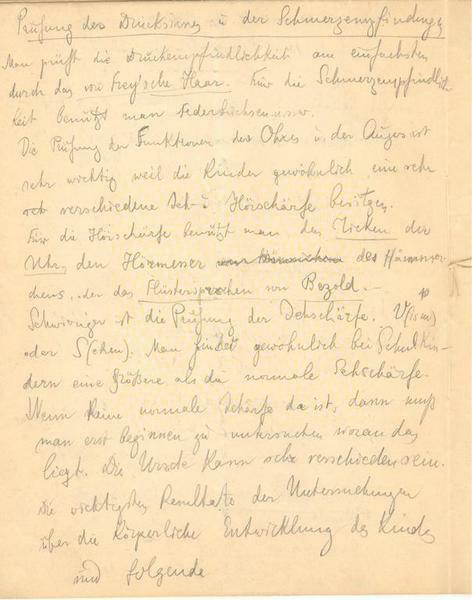 Prüfung des Drucksinnes u der Schmerzempfindung
Man prüft die Druckempfindlichkeit am einfachsten
durch das von Frey'sche Haar. Für die Schmerzempfindlich
keit benutzt man Federbüchsen u.s.w.
Die Prüfung der Funktionen des Ohres u. der Augen ist
sehr wichtig weil die Kinder gewöhnlich eine sehr
verschiedene Seh- u. Hörschärfe besitzen.
Für die Hörschärfe benützt man den Ticken der
Uhr, den Hörmesser des
chens, oder das Flüstersprechen von Bezold. –
Schwieriger ist die Prüfung der Sehschärfe. V(isus)
oder S(ehen). Man findet gewöhnlich bei Schulkin-
dern eine größere als da normale Sehschärfe.
Wenn keine normale Schärfe da ist, dann muß
man erst beginnen zu untersuchen woran das
liegt. Die Ursache kann sehr verschieden sein.
Die wichtigsten Resultate der Untersuchungen
über die körperliche Entwicklung des Kindes
sind folgende